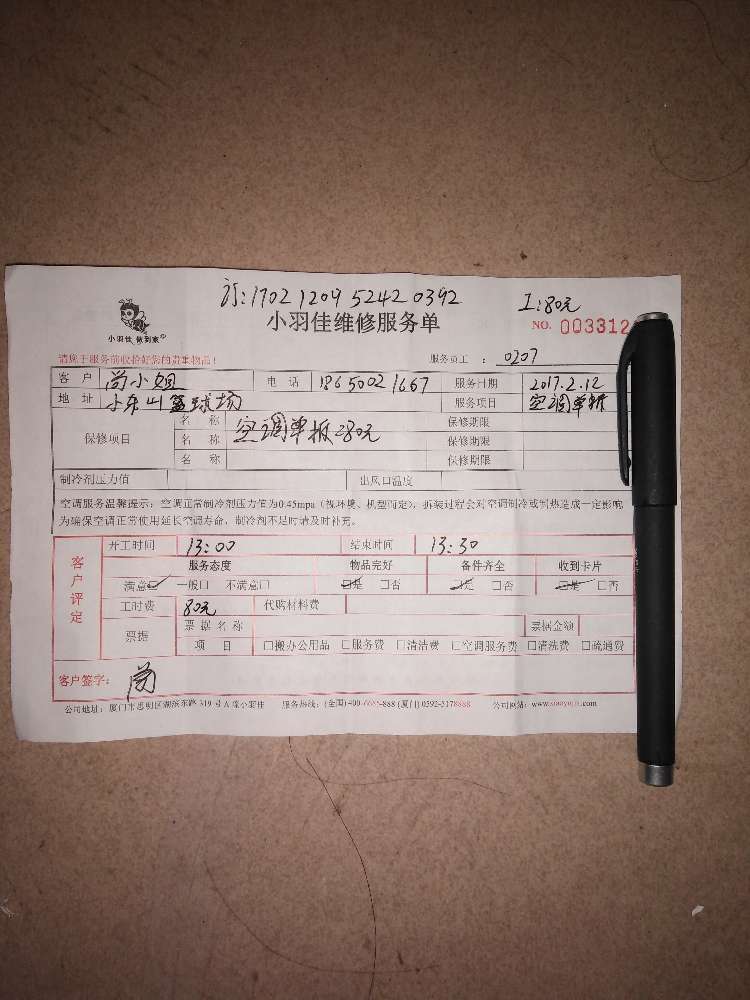 订:1702 1209 5242 0392 工:80元
小羽佳 做到家
小羽佳维修服务单 NO. 003312
请您于服务前收拾好您的贵重物品! 服务员工: 0207
客户 尚小姐 电话 18650021667 服务日期 2017.2.12
地址 篮球场 服务项目 空调单拆
保修项目 名称 空调单拆280元 保修期限
名称 保修期限
名称 保修期限
制冷剂压力值 出风口温度
空调服务温馨提示:空调正常制冷剂压力值为0.45mpa(视环境、机型而定),拆装过程会对空调制冷或制热造成一定影响
为确保空调正常使用延长空调寿命,制冷剂不足时请及时补充。
客户评定 开工时间 13:00 结束时间 13:30
服务态度 物品完好 备件齐全 收到卡片
满意□ 一般□ 不满意□ □是 □否 □是 □否 □是 □否
工时费 80元 代购材料费
票据 票据名称 票据金额
项目 □搬办公用品 □服务费 □清洁费 □空调服务费 □清洗费 □疏通费
客户签字: 尚
公司地址:厦门市思明区湖滨东路 319 号 A 座小羽佳 服务热线:(全国)400-6685-888 (厦门)0592-5178888 公司网站: